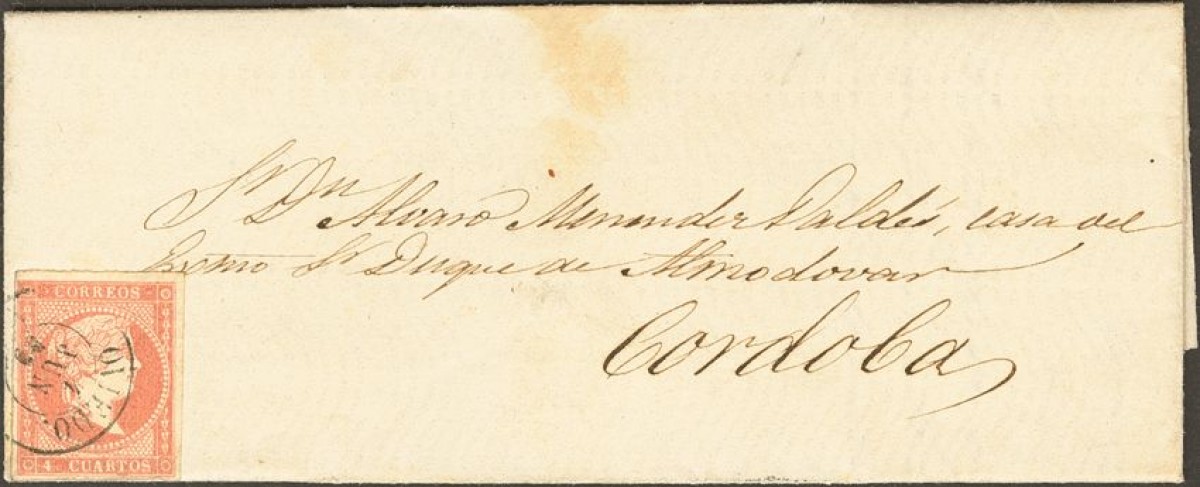 Sr Dn Alvaro Menendez Valdés, casa del
Exmo Sr Duque de Almodovar
Cordoba
CORREOS
OVIEDO.
JUN
4 CUARTOS